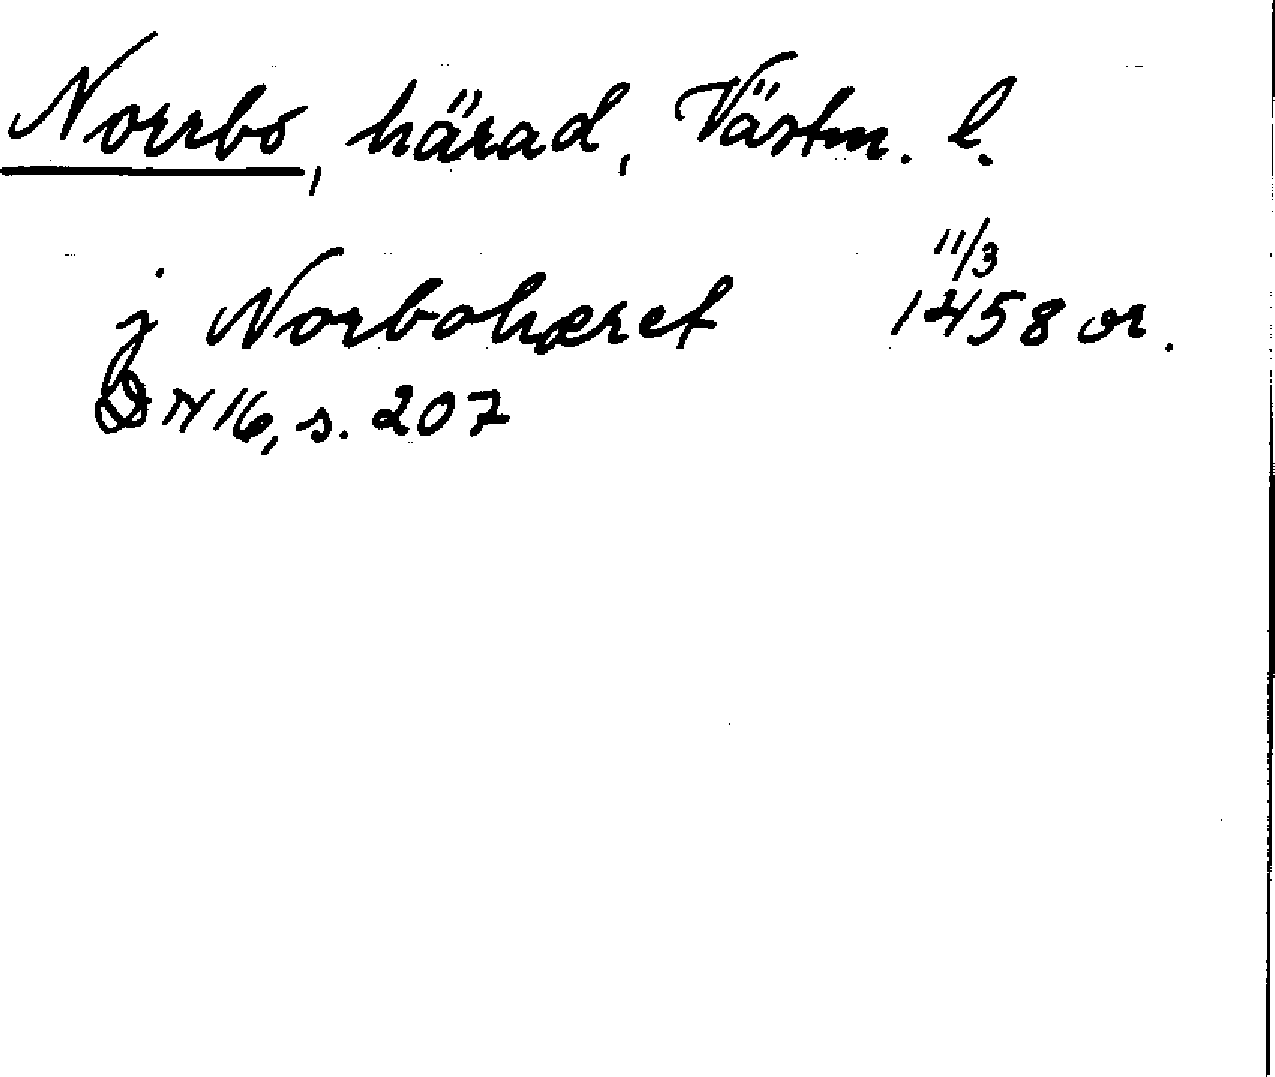 Norrbo, härad, Västm. l.
j Norbohæret 11/3 1458 or.
DN 16, s. 207